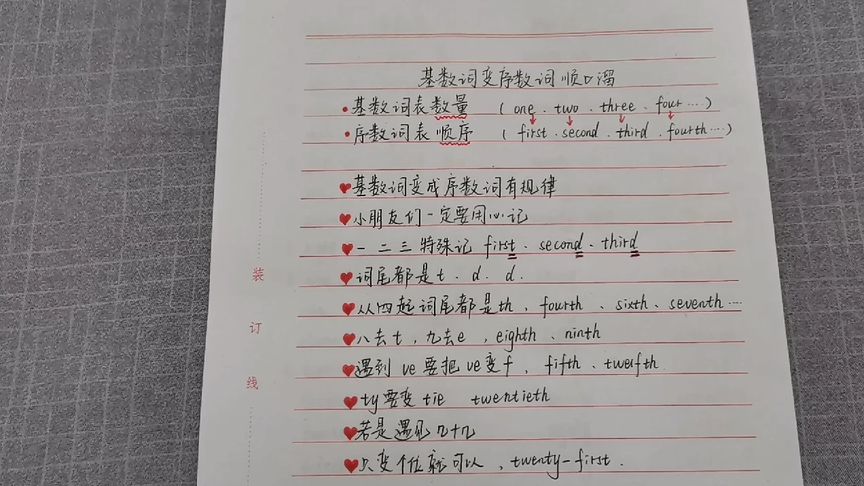 基数词变序数词顺口溜
•基数词表数量 (one . two . three . four …)
•序数词表顺序 (first . second . third . fourth …)
♥基数词变成序数词有规律
♥小朋友们一定要用心记
♥一 二 三 特殊记 first . second . third
♥词尾都是 t . d . d .
♥从四起词尾都是th , fourth 、sixth、seventh …
♥八去 t , 九去e , eighth 、ninth
♥遇到 ve 要把 ve变f , fifth 、twelfth
♥ty 要变 tie twentieth
♥若是遇见几十几
♥只变个位就可以 , twenty-first .
装
订
线